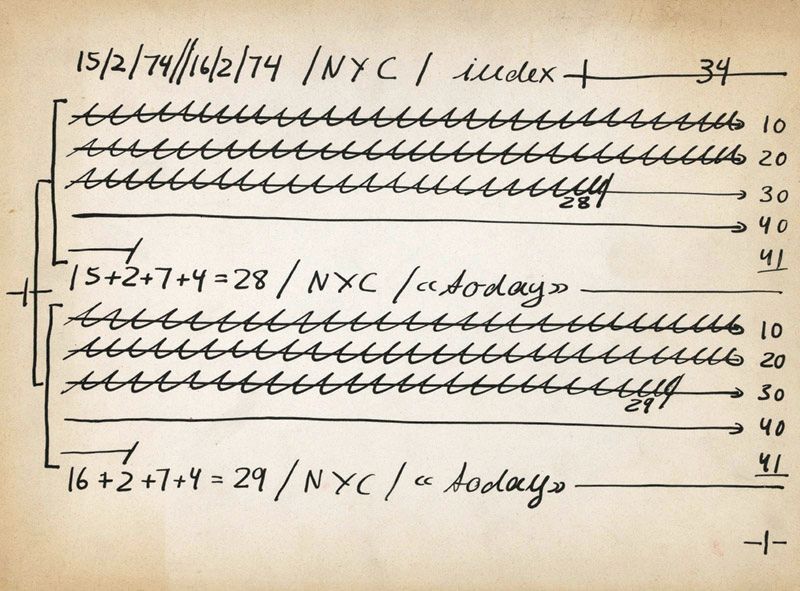 15/2/74//16/2/74 /NYC/ index 34
10
20
28 30
40
41
15+2+7+4=28 / NYC / «today»
10
20
29 30
40
41
16+2+7+4=29 / NYC / «today»